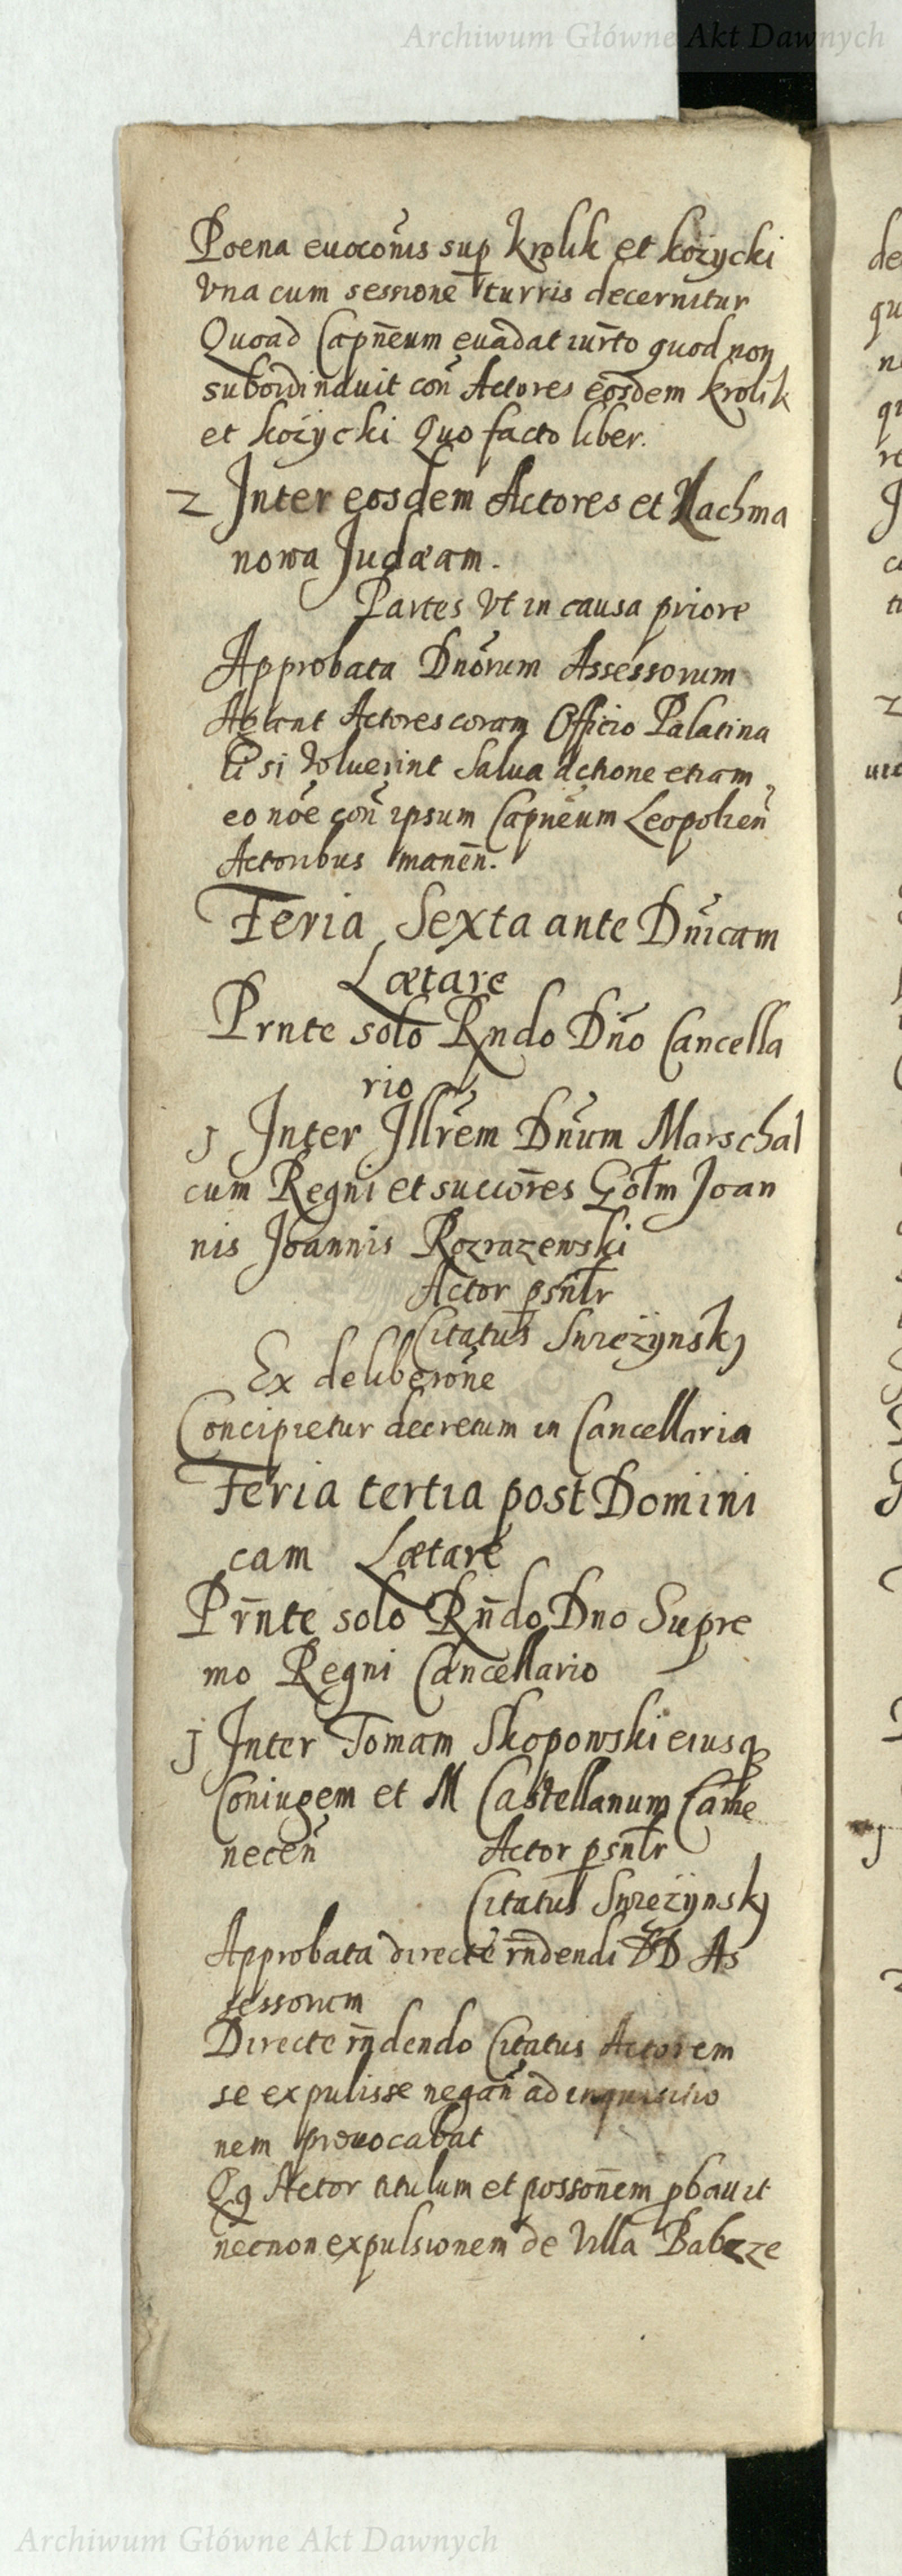 Archiwum Główne Akt Dawnych
Poena euocon̄is sup Krolik et kożycki
Vna cum sessione turris decernitur
Quoad Capn̄eum euadat iur̄to quod non
subordinauit con̄ Actores eosdem krolik
et kożycki Quo facto liber.
2 Inter eosdem Actores et Nachma
nowa Judæam.
Partes Vt in causa priore
Approbata Dnōrum Assessorum
Agant Actores coram Officio Palatina
li si Voluerint Salua actione etiam
eo nōe con̄ ipsum Capnēum Leopolien̄
Actoribus manen̄.
Feria Sexta ante Dn̄icam
Lætare
Prnte solo Rndo Dn̄o Cancella
rio
j Inter Illrēm Dn̄um Marschal
cum Regni et succōres Golm Joan
nis Joannis Rozrazewski
Actor psn̄lr
Citatus Swieżÿnskj
Ex deliberōne
Concipietur decretum in Cancellaria
Feria tertia post Domini
cam Lætare
Prn̄te solo Rn̄do Dno Supre
mo Regni Cancellario
j Inter Tomam Skopowski eiusq
Coniugem et M Castellanum Came
necen̄ Actor psn̄lr
Citatus Swieżÿnskj
Approbata directe rn̄dendi DD As
sessorum
Directe rn̄dendo Citatus Actorem
se expulisse negan̄ ad inquisitio
nem prouocabat
Qq Actor titulum et posson̄em pbauit
necnon expulsionem de Villa Babcze
Archiwum Główne Akt Dawnych